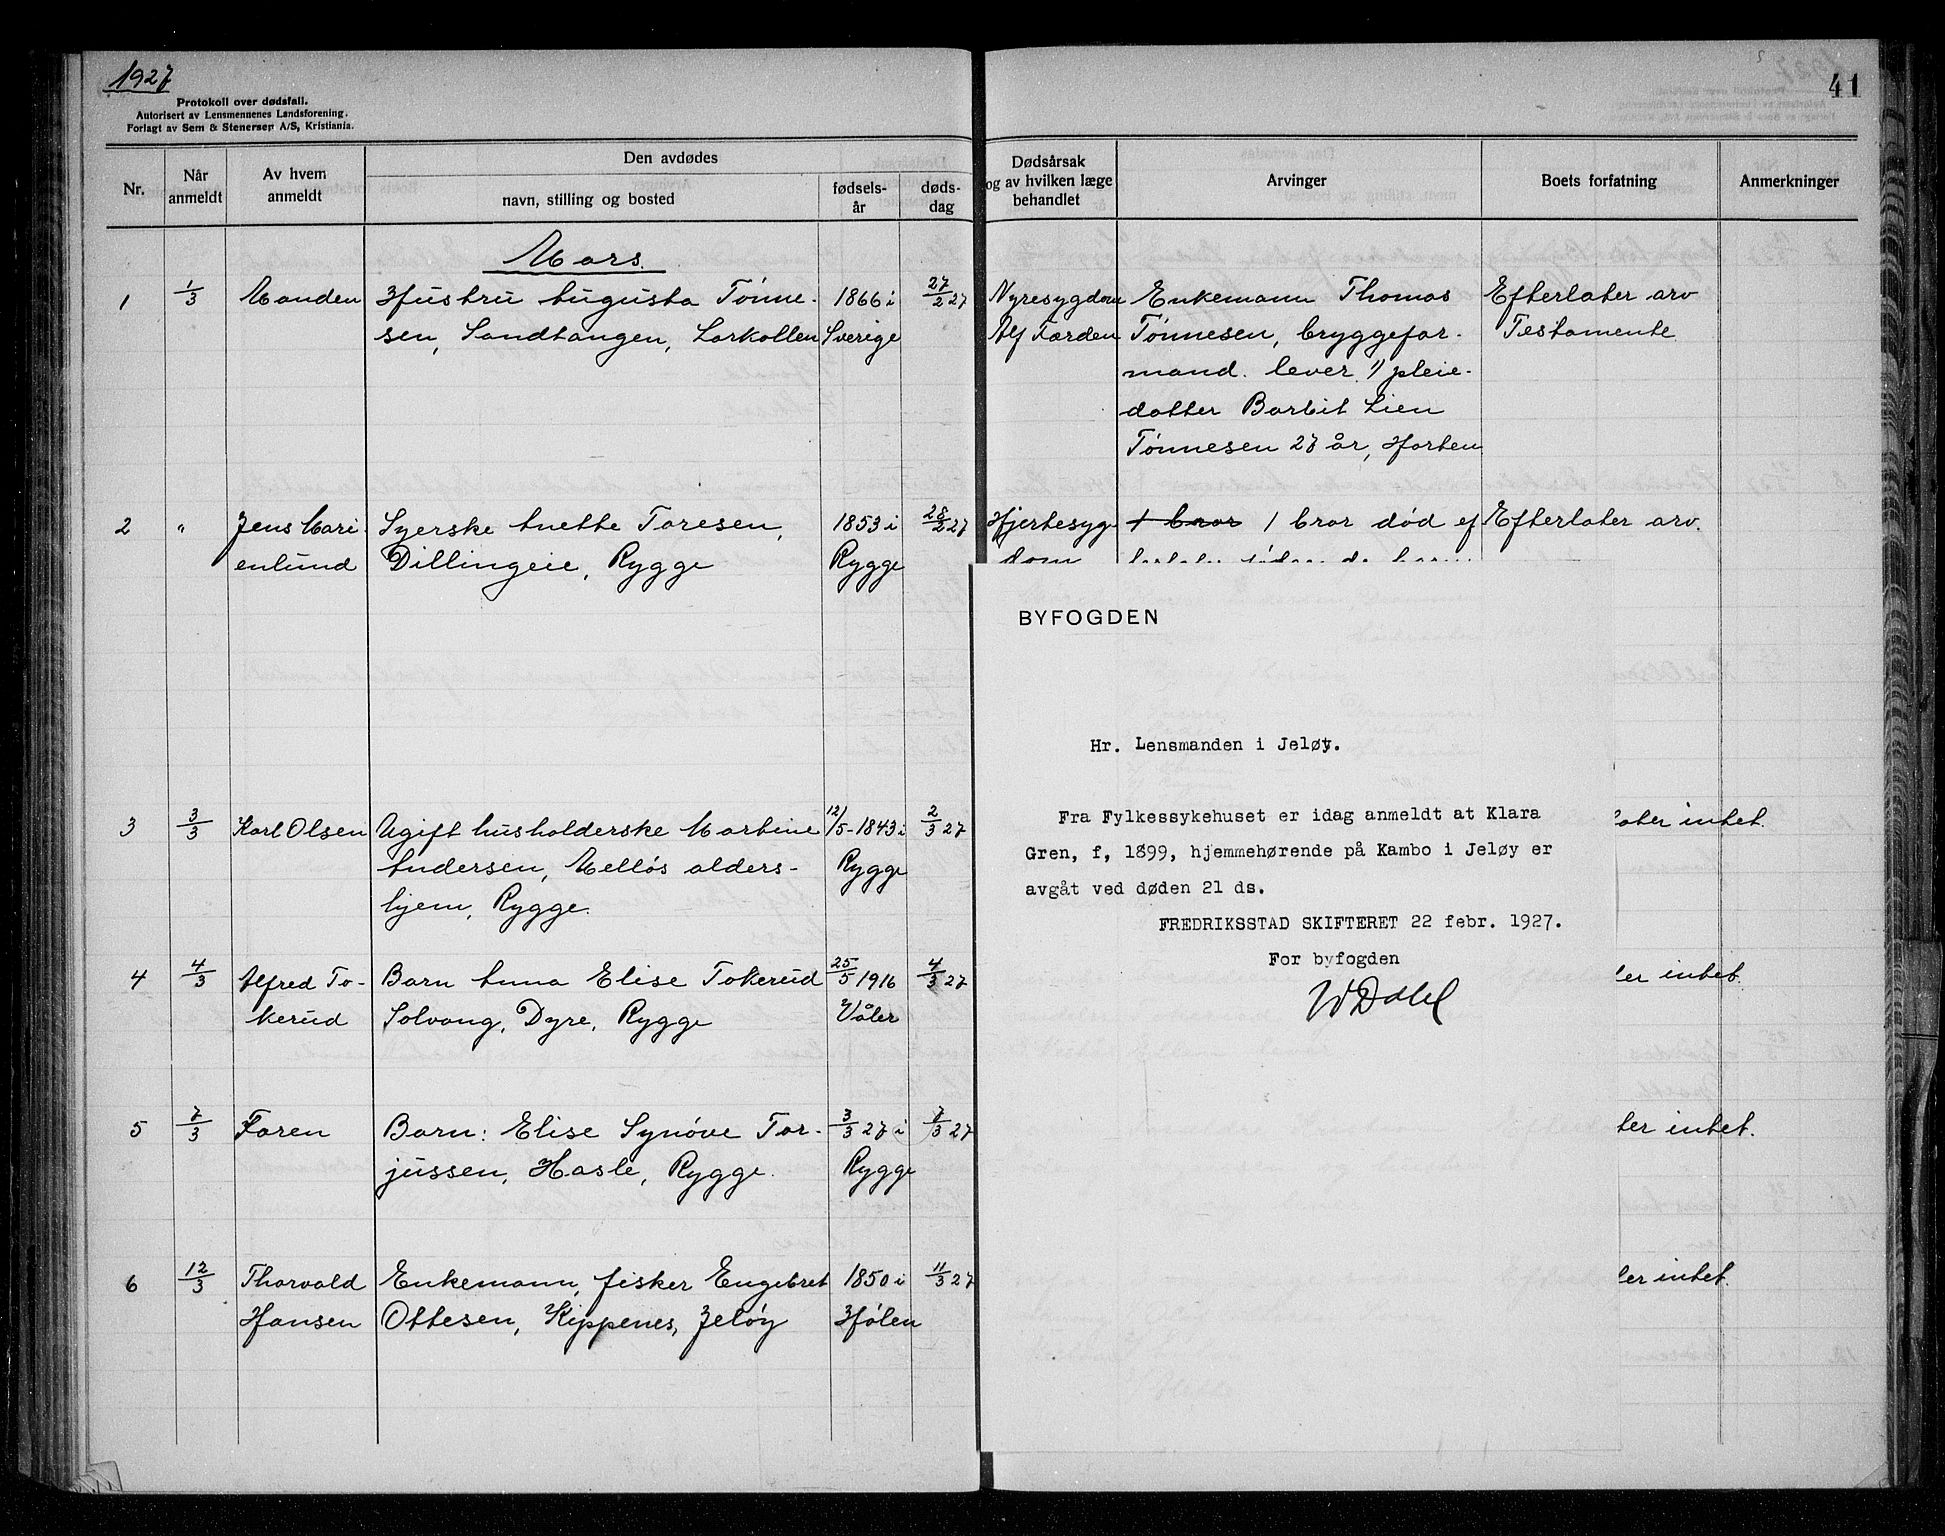 1927
41
Protokoll over dødsfall.
Autorisert av Lensmennenes Landsforening.
Forlagt av Sem & Stenersen A/S, Kristiania.
Nr.
Når anmeldt
Av hvem anmeldt
Den avdødes
navn, stilling og bosted
fødsels-år
døds-dag
Dødsårsak og av hvilken læge behandlet
Arvinger
Boets forfatning
Anmerkninger
Mars.
1 1/3 Manden Hustru Augusta Tønne- 1866 i 27/2 27 Nyresygdom Enkemann Thomas Efterlater arv
sen, Sandtangen, Larkollen Sverige Alf Færden Tønnesen, bryggefor- Testamente
mand. lever. 1) pleie-
datter Borbit Lien
Tønnesen 27 år, Horten
2 " Jens Mari- Syerske Anette Toresen, 1853 i 28/2 27 Hjertesyg- 1 bror 1 bror død ef Efterlater arv.
enlund Dillingeie, Rygge Rygge dom
3 3/3 Karl Olsen Ugift husholderske Martine 12/5-1843 i 2/3 27 ater intet.
Andersen, Melløs alders- Rygge
hjem, Rygge.
4 4/3 Alfred To- Barn Anna Elise Tokerud 25/5 1916 4/3 27 ler intet.
kerud Solvang, Dyre, Rygge Våler
5 7/3 Faren Barn: Elise Synøve Tor- 3/3 27 i 7/3 27 ter intet.
jussen, Hasle, Rygge. Rygge
6 12/3 Thorvald Enkemann, fisker Engebret 1850 i 11/3 27 ler intet.
Hansen Ottesen, Kippenes, Jeløy Hølen
BYFOGDEN
Hr. Lensmanden i Jeløy.
Fra Fylkessykehuset er idag anmeldt at Klara
Gren, f, 1899, hjemmehørende på Kambo i Jeløy er
avgåt ved døden 21 ds.
FREDRIKSSTAD SKIFTERET 22 febr. 1927.
For byfogden